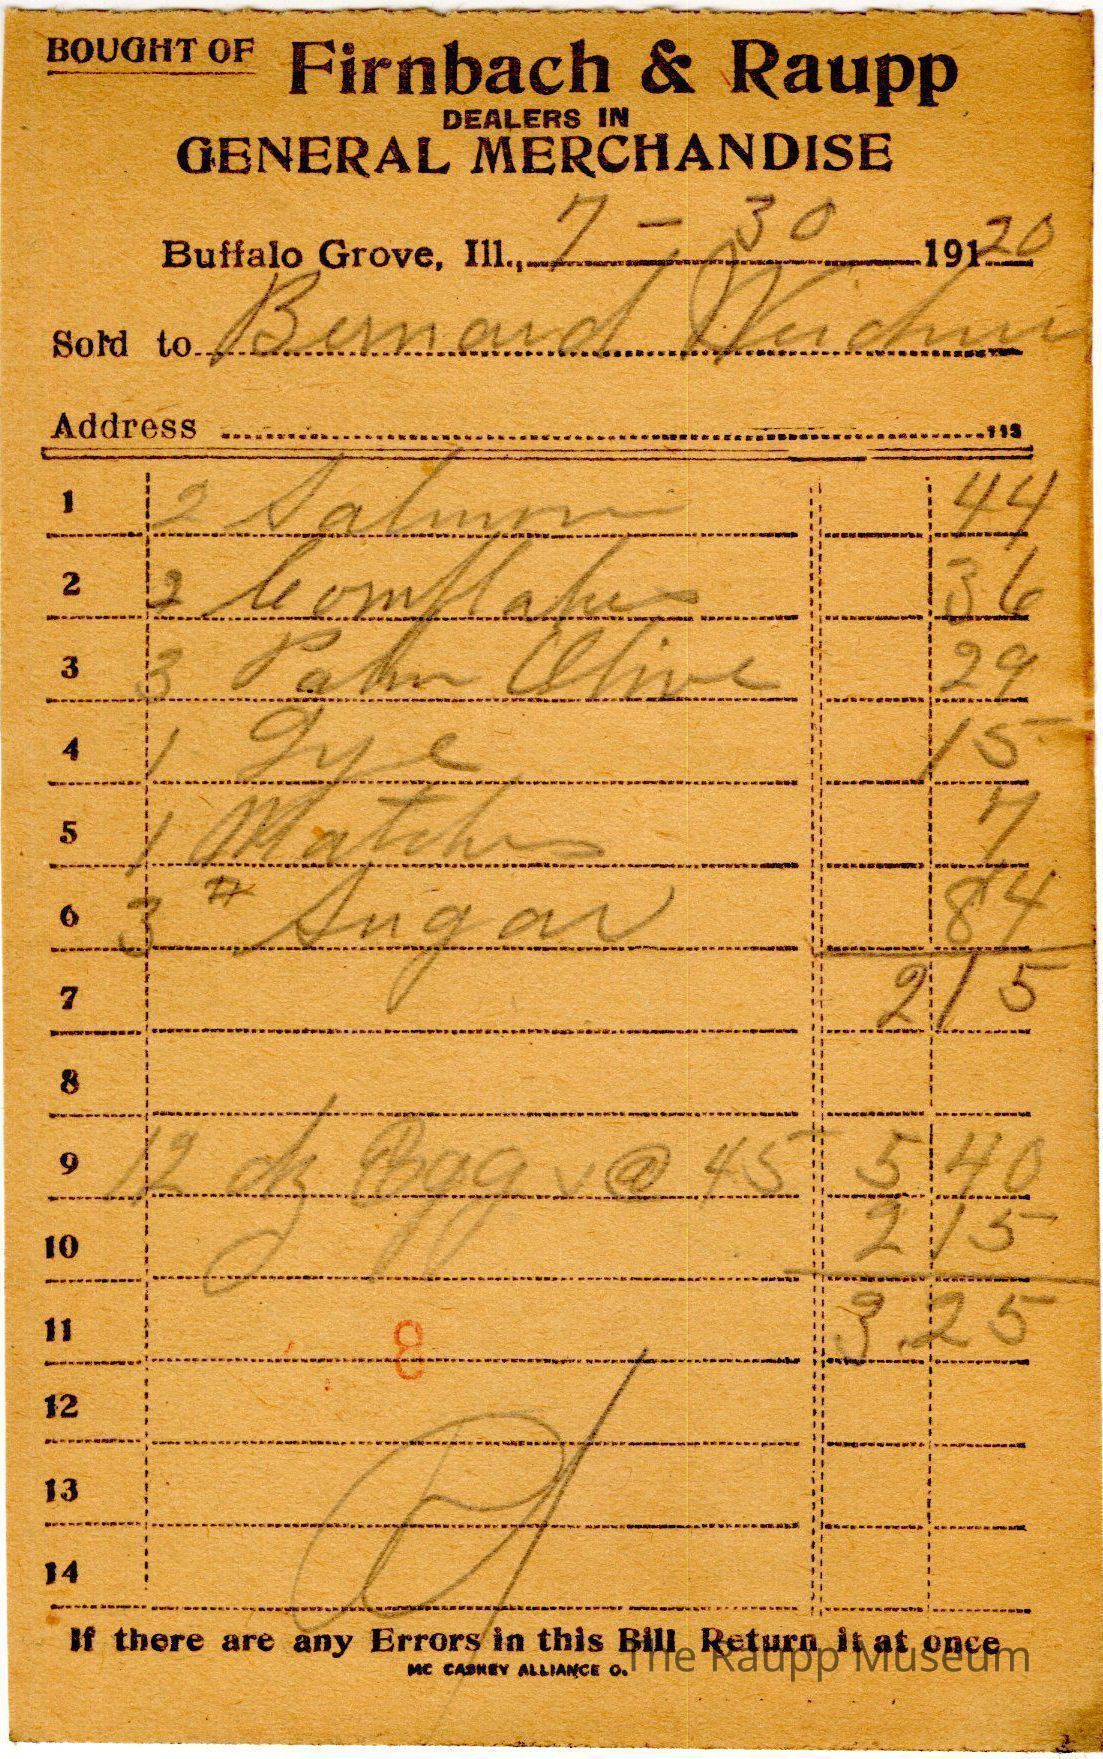 BOUGHT OF Firnbach & Raupp
DEALERS IN
GENERAL MERCHANDISE
Buffalo Grove, Ill., 7 - 30 191 20
Sold to Bernard
Address 113
1 2 Salmon 44
2 2 Cornflakes 36
3 3 Palm Olive 29
4 1 Lye 15
5 1 Matches 7
6 3 # Sugar 84
7 2 15
8
9 12 dz Egg @ 45 5 40
10 2 15
11 3.25
8
12
13
14
If there are any Errors in this Bill Return it at once
MC CASKEY ALLIANCE O.
The Raupp Museum